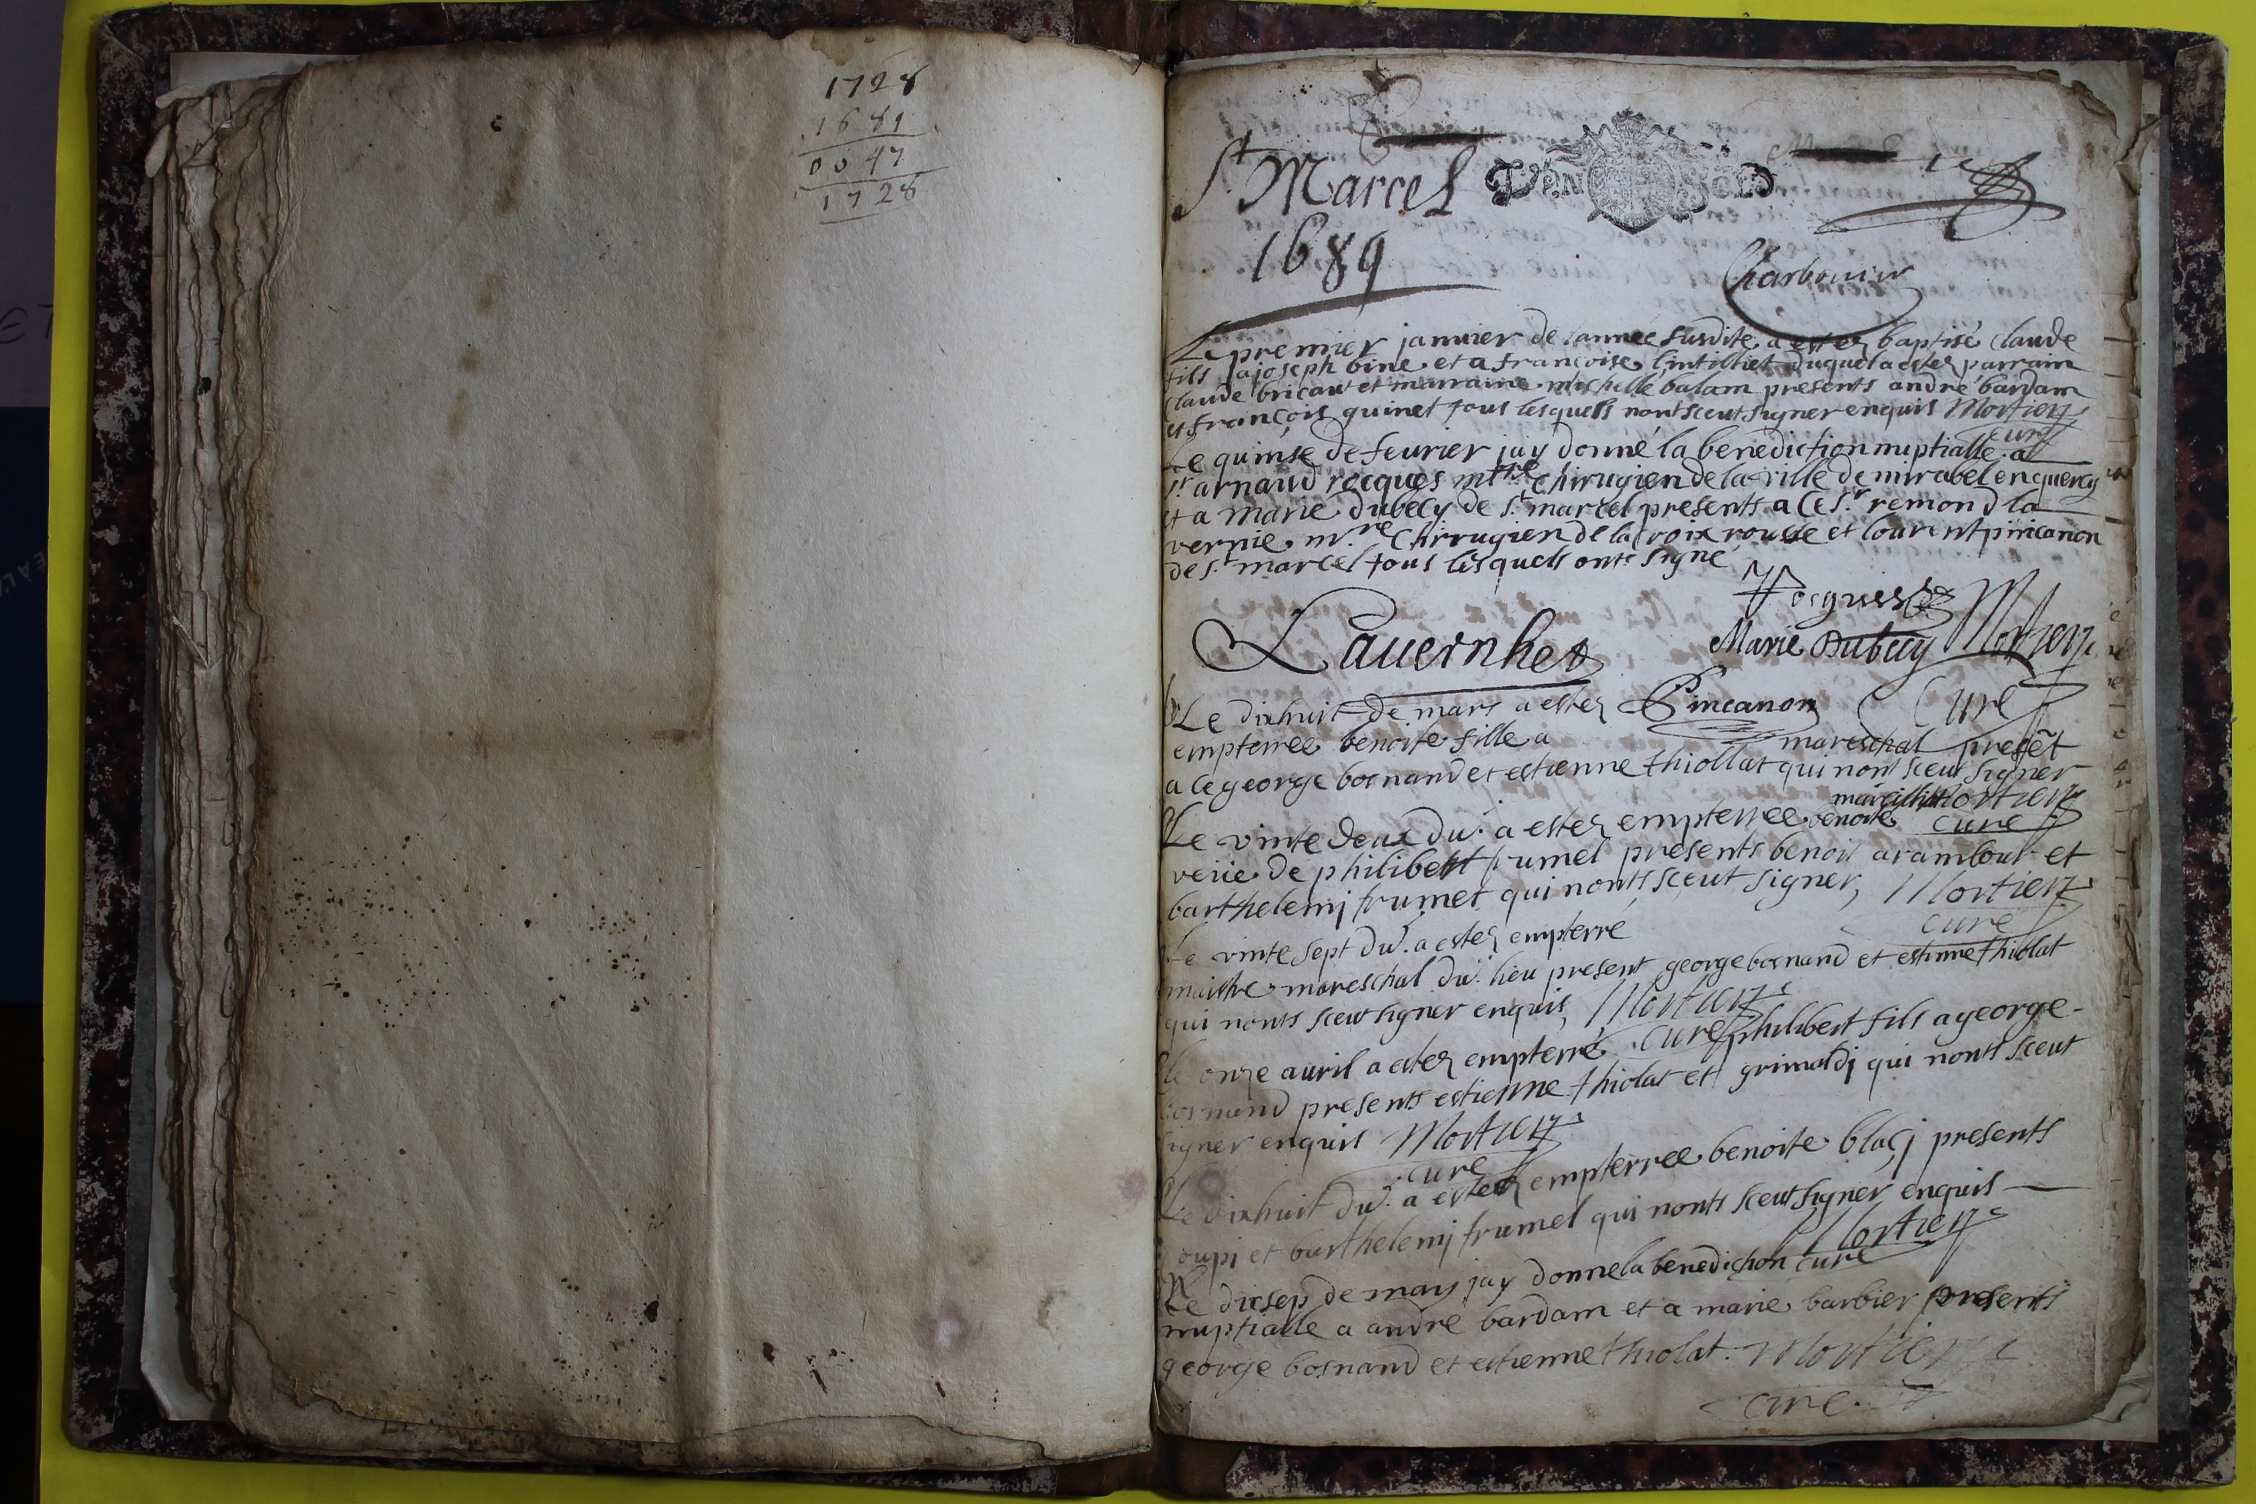 1728
1681
0047
1728
St Marcel
1689
Charbonier
Le premier januier de lannee susdite a estez baptisé claude
fils a joseph bine et a francoise duquel a estez parrain
claude bricaut et marraine michelle balam presents andre bardam
et françois guinet tous lesquels nont sceut signer enquis Mortier
curé
Le quinse de feurier jay donné la benediction nuptialle a
sr arnaud rocques mtre chirugien de la ville de mirabel en quercy
et a marie dubecy de st marcel presents a ce sr remond la
vernie mre chirrugien de la croix rousse et lourent pincanon
de st marcel tous lesquels onts signé
Lauernhe
Marie Dubecy Mortier
Le dixhuit de mars a estez Pincanon Curé
empterree benoite fille a mareschal presēt
a ce george bosnand et estienne thiollat qui nont sceut signer
Mortier
Le vinte deux du. a estez empterree benoite curé
veüe de philibert frumel presents benoit arambour et
barthelemj frumet qui nonts sceut signer, Mortier
curé
Le vinte sept du. a estez empterré
maistre mareschal du. lieu present george bosnand et estienne thiolat
qui nonts sceut signer enquis, Mortier
Le onze auril a estez empterré curé philibert fils a george
bosnand presents estienne thiolat et grimoldj qui nonts sceut
signer enquis Mortier
curé
Le dixhuit du. a estez empterree benoite blacj presents
oupi et barthelemj frumel qui nonts sceut signer enquis
Mortier
Le dixsep de may jay donne la benediction curé
nuptialle a andre bardam et a marie barbier presents
george bosnand et estienne thiolat. Mortier
curé.